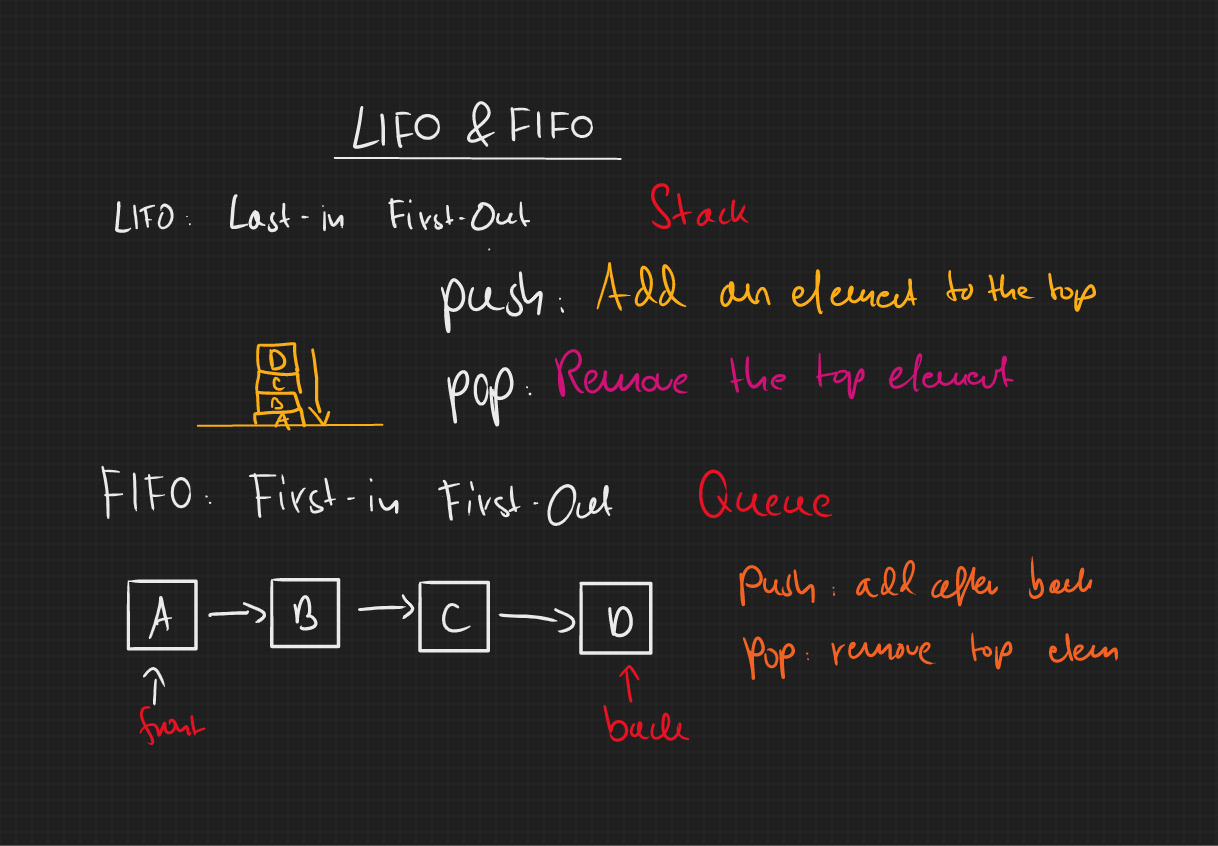 LIFO & FIFO
LIFO: Last-in First-Out Stack
push: Add an element to the top
pop: Remove the top element
D
C
B
A
FIFO: First-in First-Out Queue
A B C D
front back
Push: add after back
pop: remove top elem